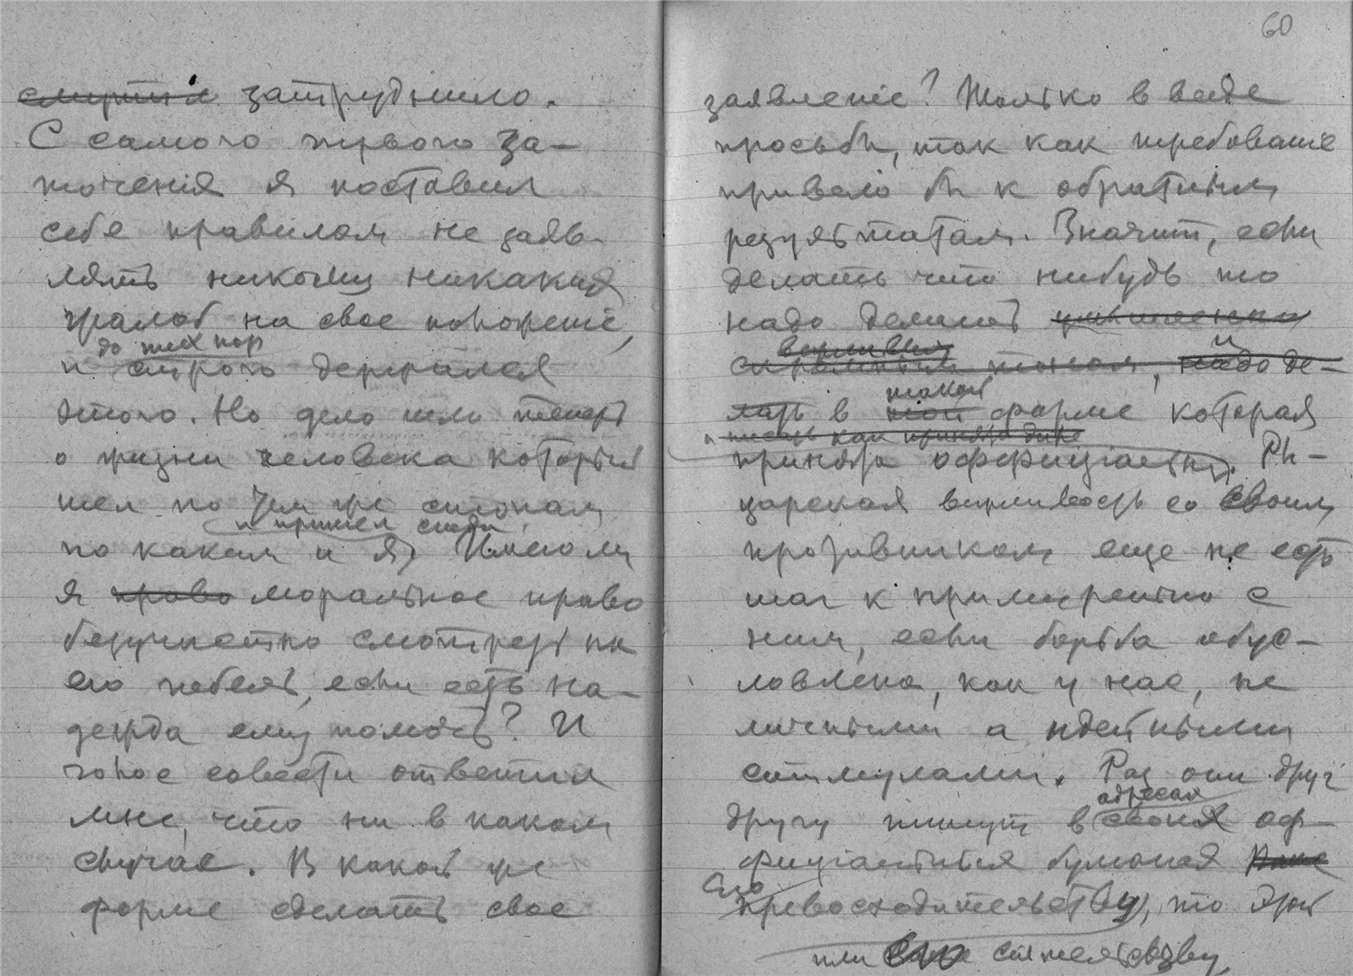 затруднило.
С самого первого за-
точенія я поставил
себе правилом не заяв-
лять никому никаких
жалоб на свое положеніе,
до тех пор
и строго держался
этого. Но дело шло теперь
о жизни человека который
шел по тем же стопам
и пришел сюда
по каким и я. Имею ли
я право моральное право
безучастно смотреть на
его гибель, если есть на-
дежда ему помочь? И
голос совести ответил
мне, что ни в каком
случае. В какой же
форме сделать свое
60
заявленіе? Только в виде
просьбы, так как требованіе
привело бы к обратным
результатам. Значит, если
делать что нибудь то
надо делать
вежливым
скромным тоном, и надо де-
такой
лать в той форме которая
и писать как принято
принята оффиціально. Ры-
царская вежливость со своим
противником еще не есть
шаг к примиренію с
ним, если борьба обус-
ловлена, как у нас, не
личными а идейными
стимулами. Раз они друг
адресах
другу пишут в своих оф-
фиціальных бумагах
Его
превосходительству, то
или сіятельству,